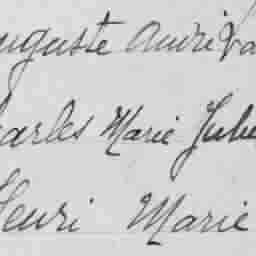 uguste André Va
harles Marie Jule
Henri Marie